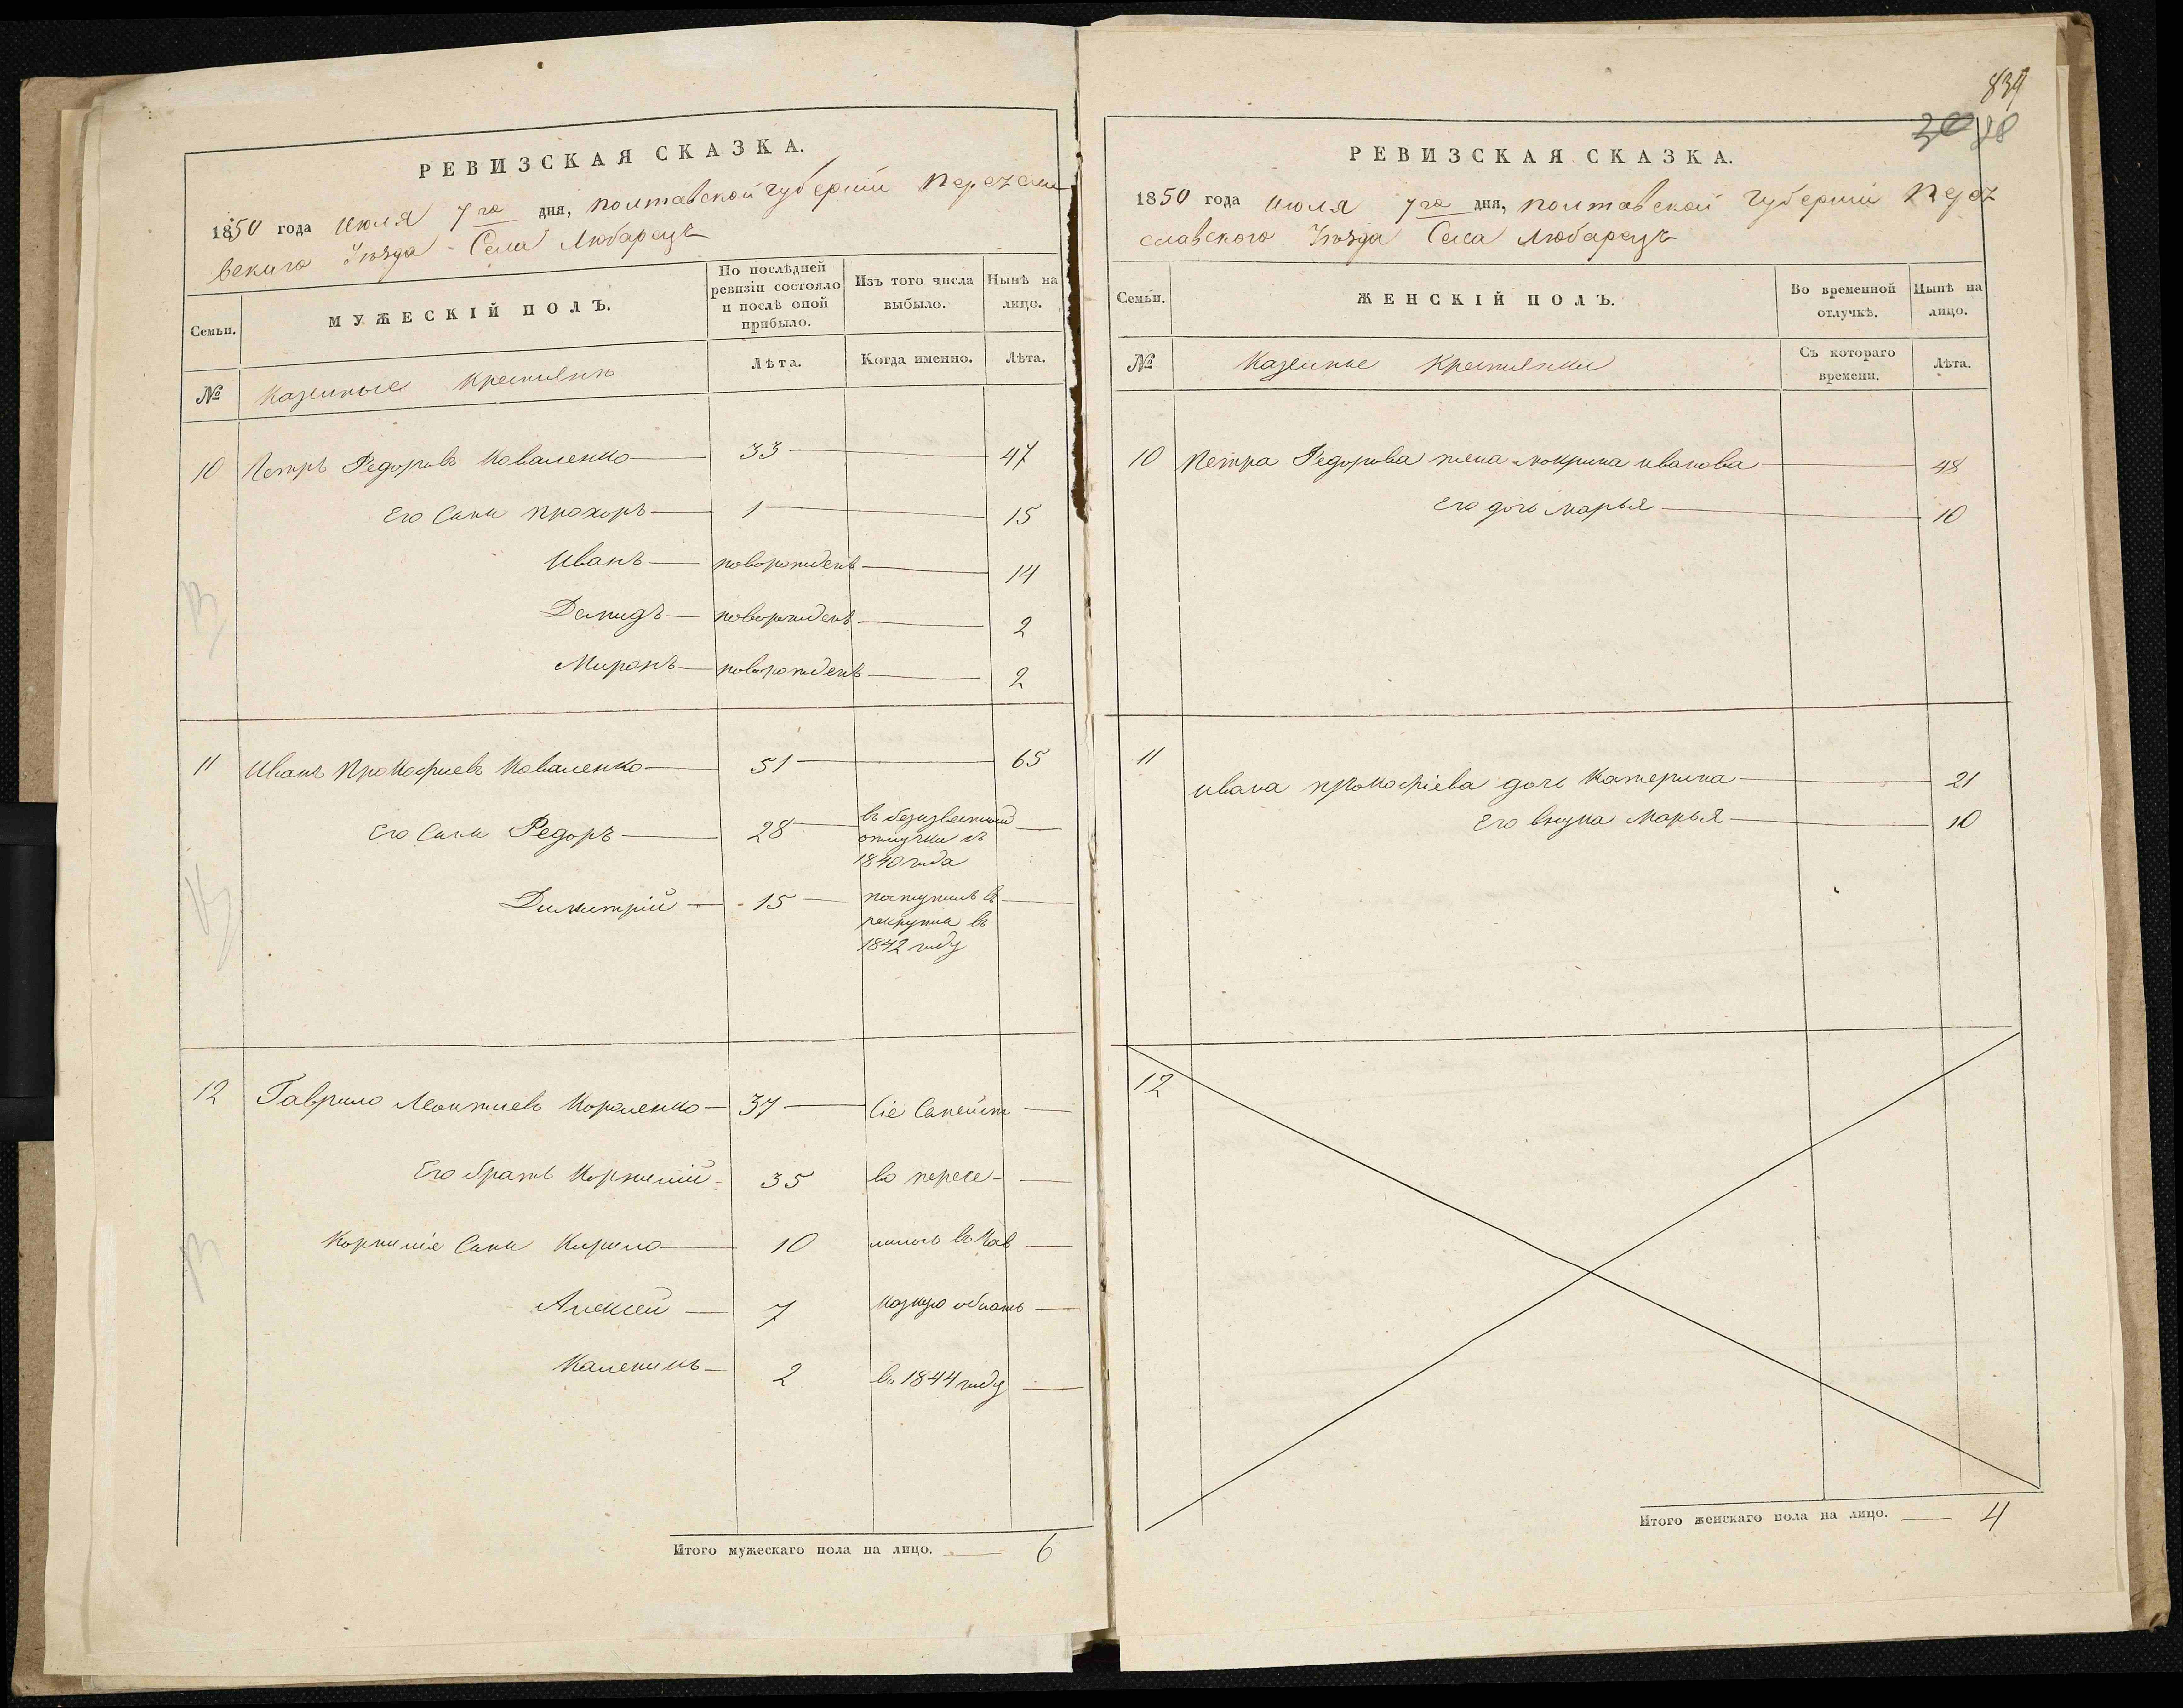 РЕВИЗСКАЯ СКАЗКА.
1850 года Июля 7го дня, Полтавской губернии Переясла
вскаго Уѣзда Села Любарецъ
Семьи.
МУЖЕСКІЙ ПОЛЪ.
По послѣдней ревизіи состояло и послѣ оной прибыло.
Изъ того числа выбыло.
Нынѣ на лицо.
№
Казенные Крестьяне
Лѣта.
Когда именно.
Лѣта.
10 Петръ Федоровъ Коваленко 33 47
Его Сыны Прохоръ 1 15
Иванъ новорожденъ 14
Демидъ новорожденъ 2
Миронъ новорожденъ 2
11 Иванъ Прокофиевъ Коваленко 51 65
Его Сыны Федоръ 28 въ безизвестной
отлучки съ
1840 года
Димитрій 15 поступилъ въ
рекруты въ
1842 году
12 Гаврило Леонтиевъ Короленко 37 Сіе Семейст
Его братъ Корнилій 35 во пересе-
Корнилія Сыны Кирило 10 лилось въ Кав
Алексей 7 казкую область
Каленикъ 2 въ 1844 году
Итого мужескаго пола на лицо. 6
839
30 28
РЕВИЗСКАЯ СКАЗКА.
1850 года Июля 7го дня, Полтавской Губернии Перея
славского Уѣзда Села Любарецъ
Семьи.
ЖЕНСКІЙ ПОЛЪ.
Во временной отлучкѣ.
Нынѣ на лицо.
№
Казенные Крестьянки
Съ котораго времени.
Лѣта.
10 Петра Федорова жена Мокрина Иванова 48
Его дочь Марья 10
11
Ивана Прокофіева дочь Катерина 21
Его внука Марья 10
12
Итого женскаго пола на лицо. 4